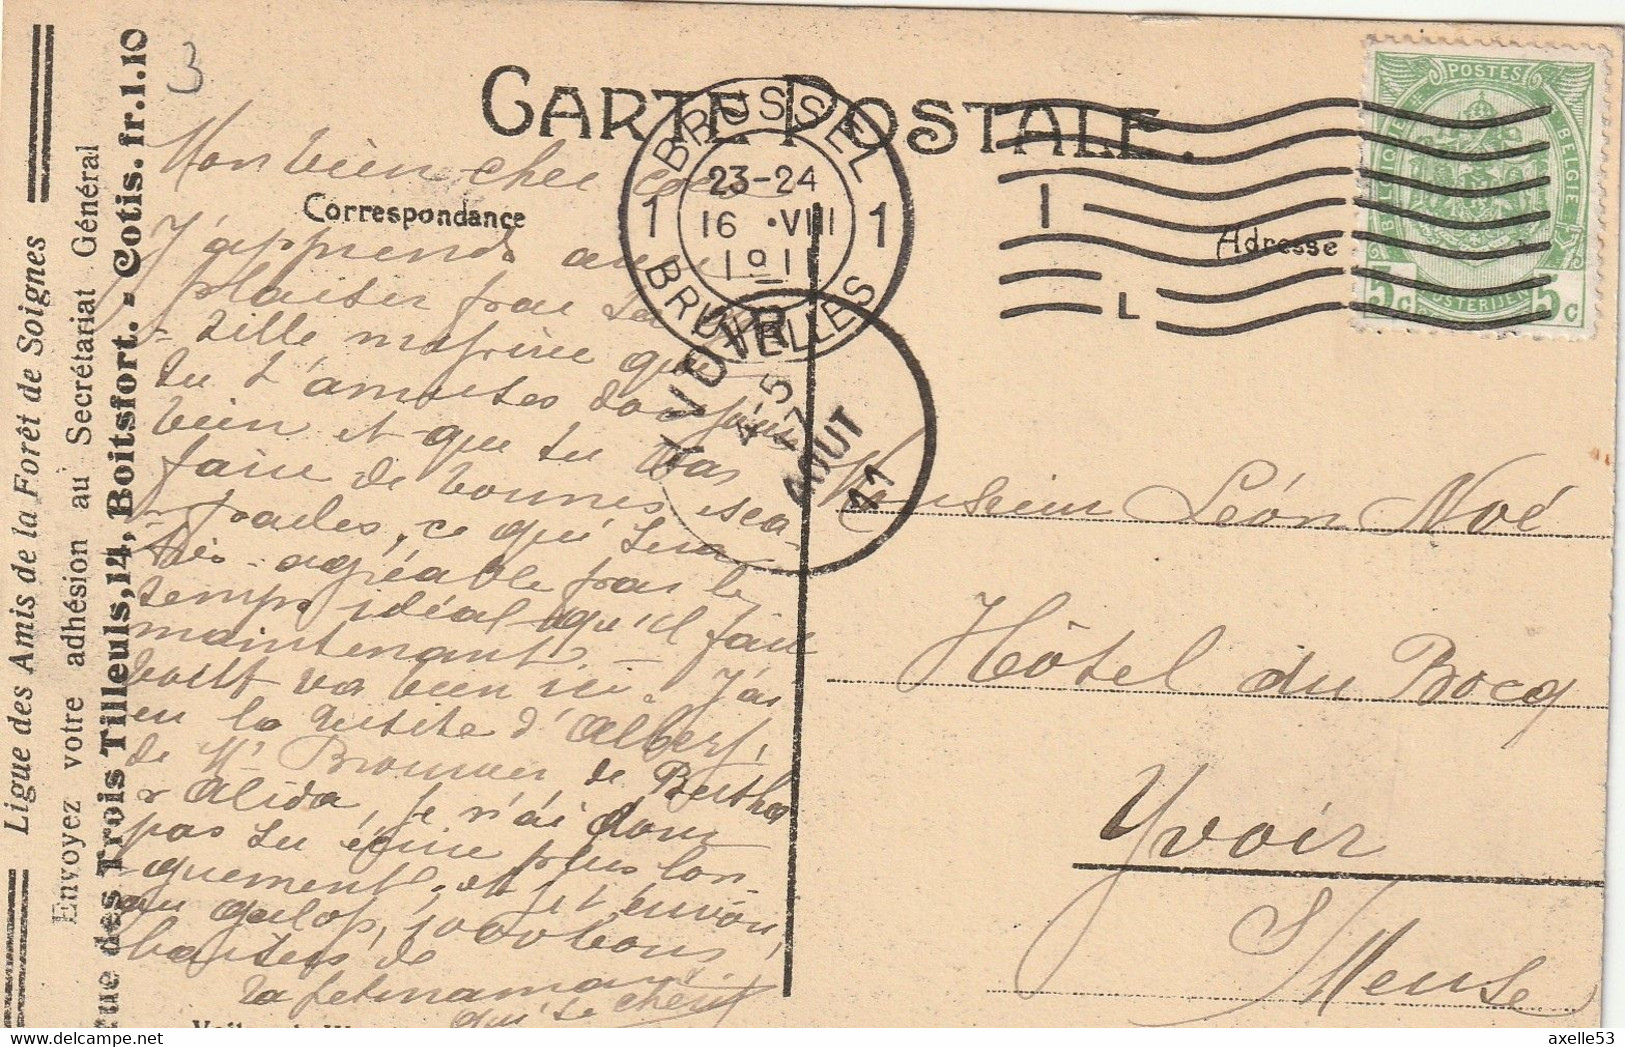 Ligue des Amis de la Forêt de Soignes
Envoyez votre adhésion au Secrétariat Général
rue des Trois Tilleuls, 14, Boitsfort. - Cotis. fr. 1.10
3
CARTE POSTALE.
Correspondance
Adresse
BRUSSEL
23-24
1 16 VIII 1
191
BRUXELLES
1
L
YVOIR
4-5
17
AOUT
11
POSTES
BELGIQUE BELGIE
POSTERIJEN
5 c 5 c
Mon bien cher
J'apprends avec
plaisir par ta
tille que
tu t'amuses toujours
bien et que tu vas
faire de bonnes esca-
pades, ce qui sera
très agréable par le
temps idéal qu'il fait
maintenant. -
tout va bien ici. J'ai
eu la visite d'Albert,
de Mr de Bertha
& Alida, je n'ai donc
pas su écrire plus lon-
guement, et je t'envoie,
au galop, 1000 bons
baisers de
ta petite maman
qui te chérit
Monsieur Léon Noé
Hôtel du Bocq
Yvoir
S/Meuse
axelle53